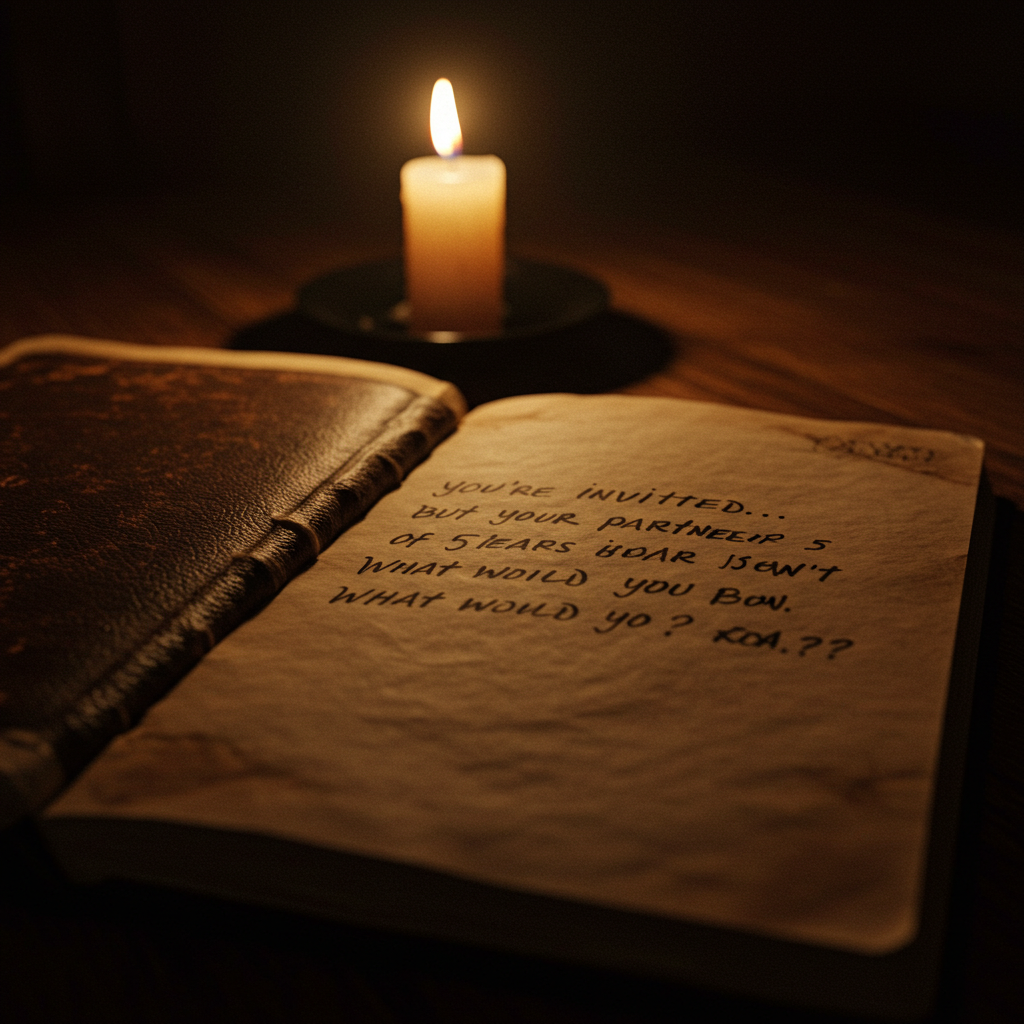 YOU'RE INVITTED...
BUT YOUR PARTNEEIR S
OF 5 IEARS BOAR ISƏN'T
WHAT WOILD YOU BOW.
WHAT WOULD YO? KOA.??